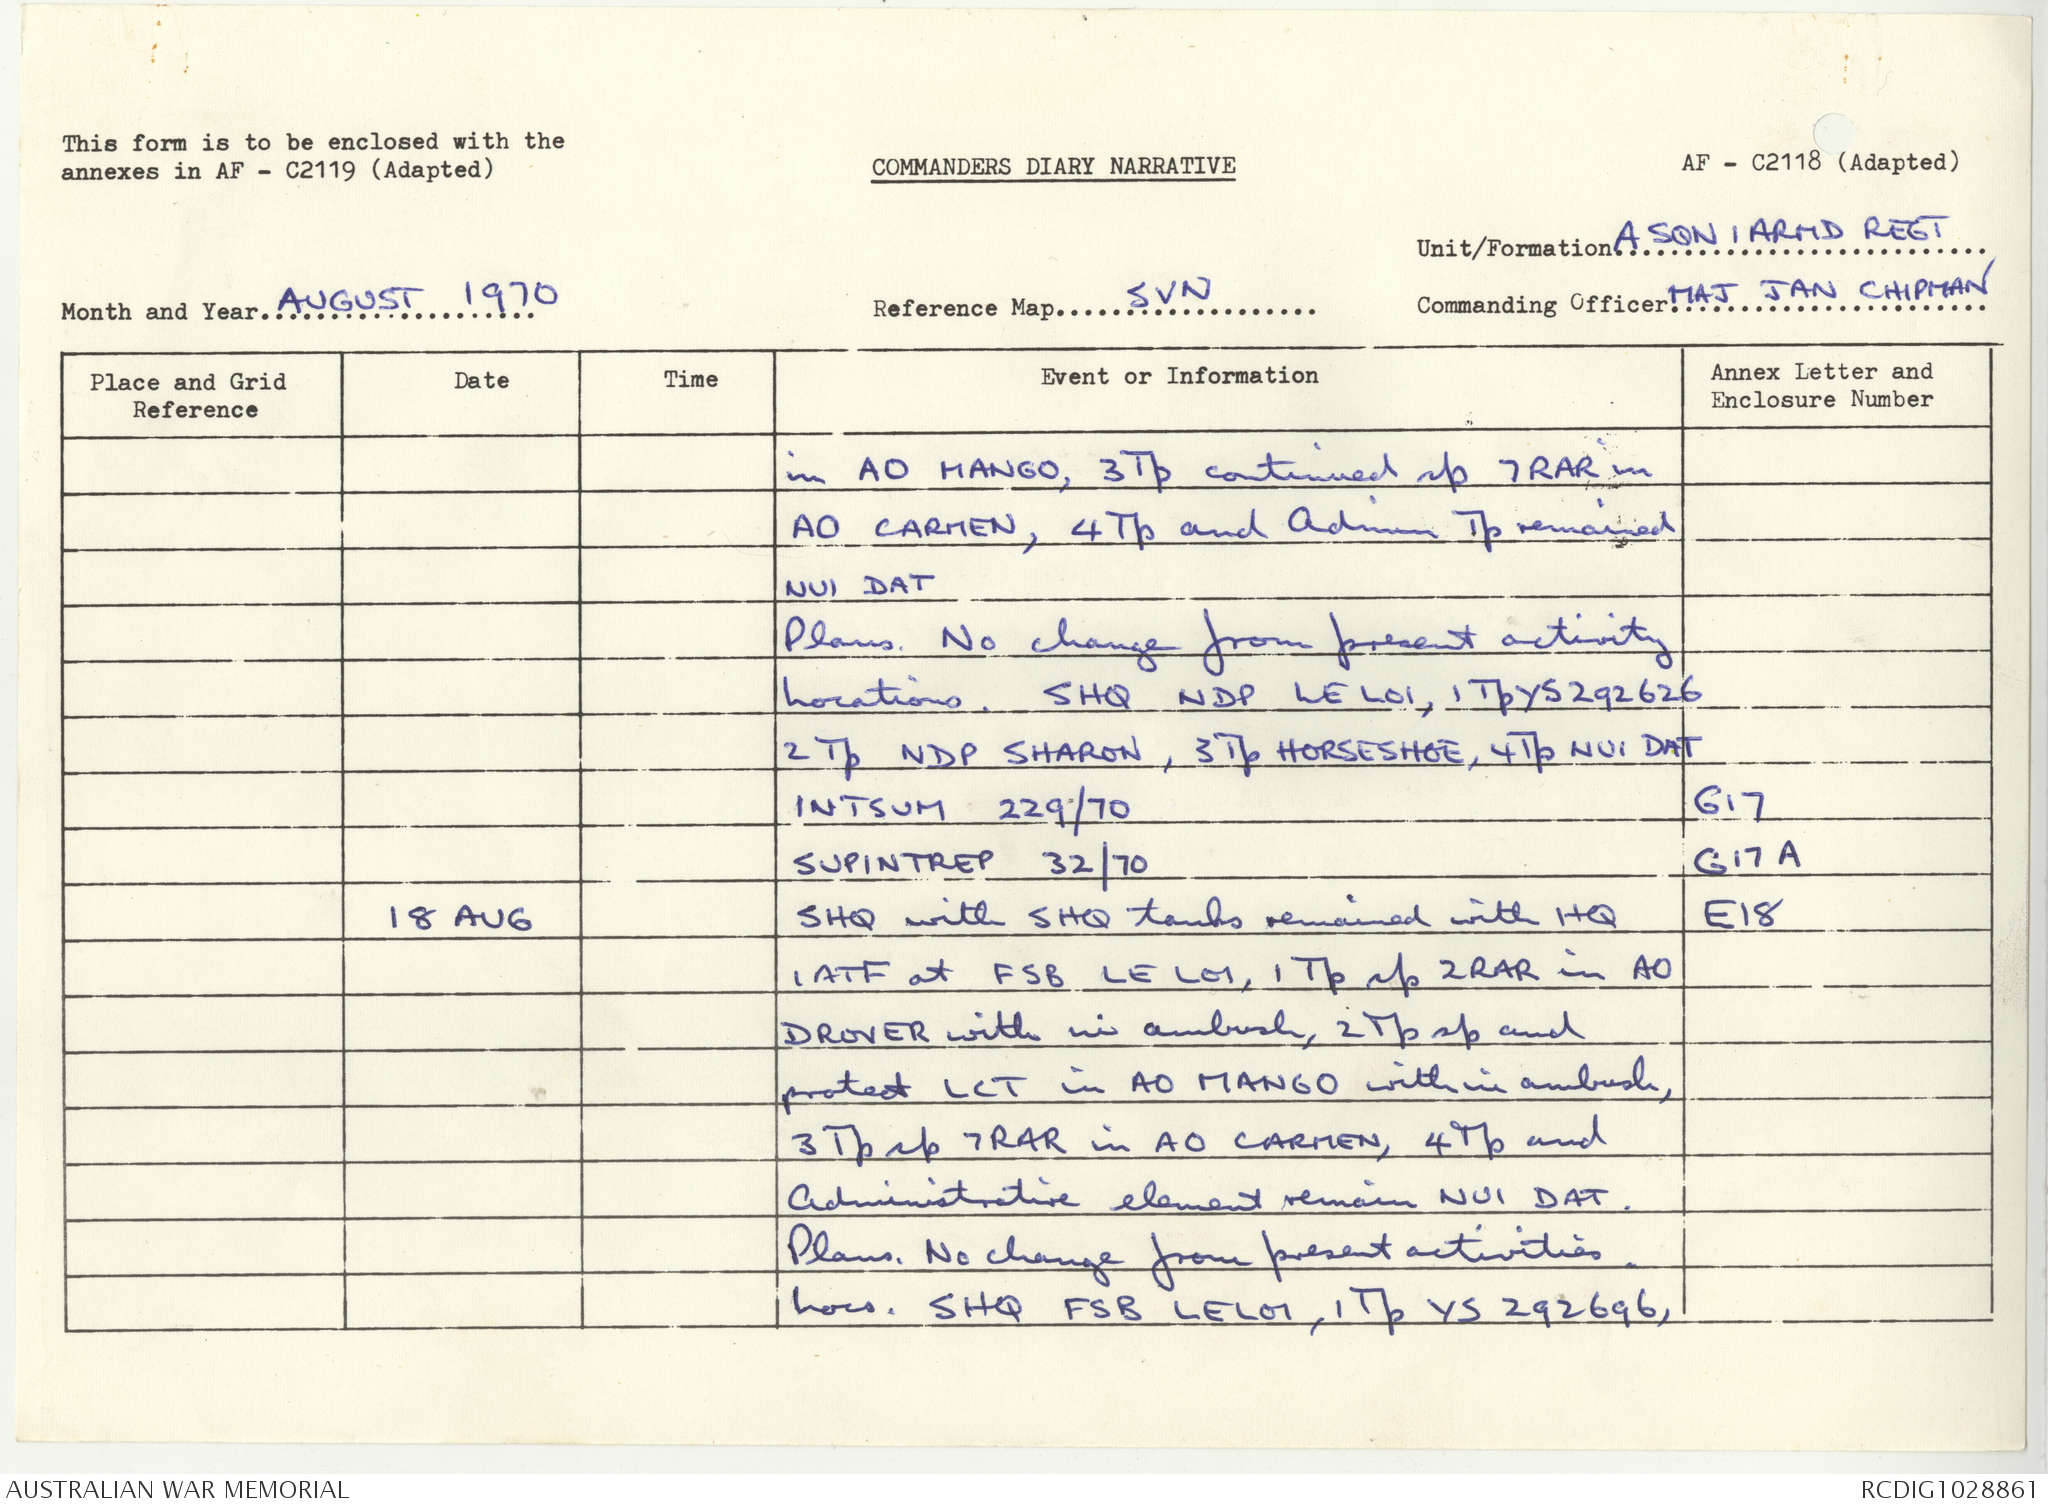 This form is to be enclosed with the
annexes in AF - C2119 (Adapted)
COMMANDERS DIARY NARRATIVE
AF - C2118 (Adapted)
Unit/Formation A SQN 1 ARMD REGT
Month and Year AUGUST 1970
Reference Map SVN
Commanding Officer MAJ JAN CHIPMAN
Place and Grid Reference
Date
Time
Event or Information
Annex Letter and Enclosure Number
in AO MANGO, 3Tp continued sp 7RAR in
AO CARMEN, 4 Tp and Admin Tp remained
NUI DAT
Plans. No change from present activity
Locations. SHQ NDP LE LOI, 1 Tp YS 292626
2 Tp NDP SHARON, 3Tp HORSESHOE, 4Tp NUI DAT
INTSUM 229/70 G17
SUPINTREP 32/70 G17A
18 AUG SHQ with SHQ tanks remained with HQ E18
1ATF at FSB LE LOI, 1 Tp sp 2RAR in AO
DROVER with in ambush, 2 Tp sp and
protect LCT in AO MANGO with in ambush,
3 Tp sp 7RAR in AO CARMEN, 4Tp and
Administrative element remain NUI DAT.
Plans. No change from present activities.
Locs. SHQ FSB LE LOI, 1 Tp YS 292696,
AUSTRALIAN WAR MEMORIAL
RCDIG1028861